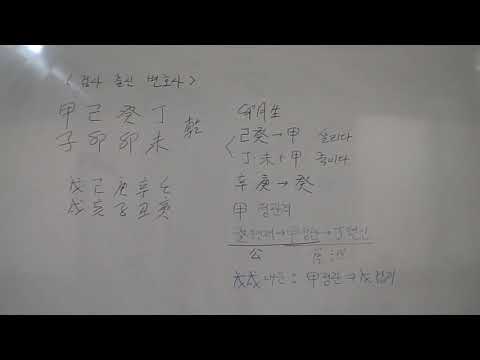 <검사 출신 변호사>
甲 己 癸 丁 乾
子 卯 卯 未
戊 己 庚 辛 壬
戌 亥 子 丑 寅
卯月生
己癸→甲 살리다
丁·未+甲 죽이다
辛庚→癸
甲 정관격
公
戊戌대운: 甲정관→戊겁재